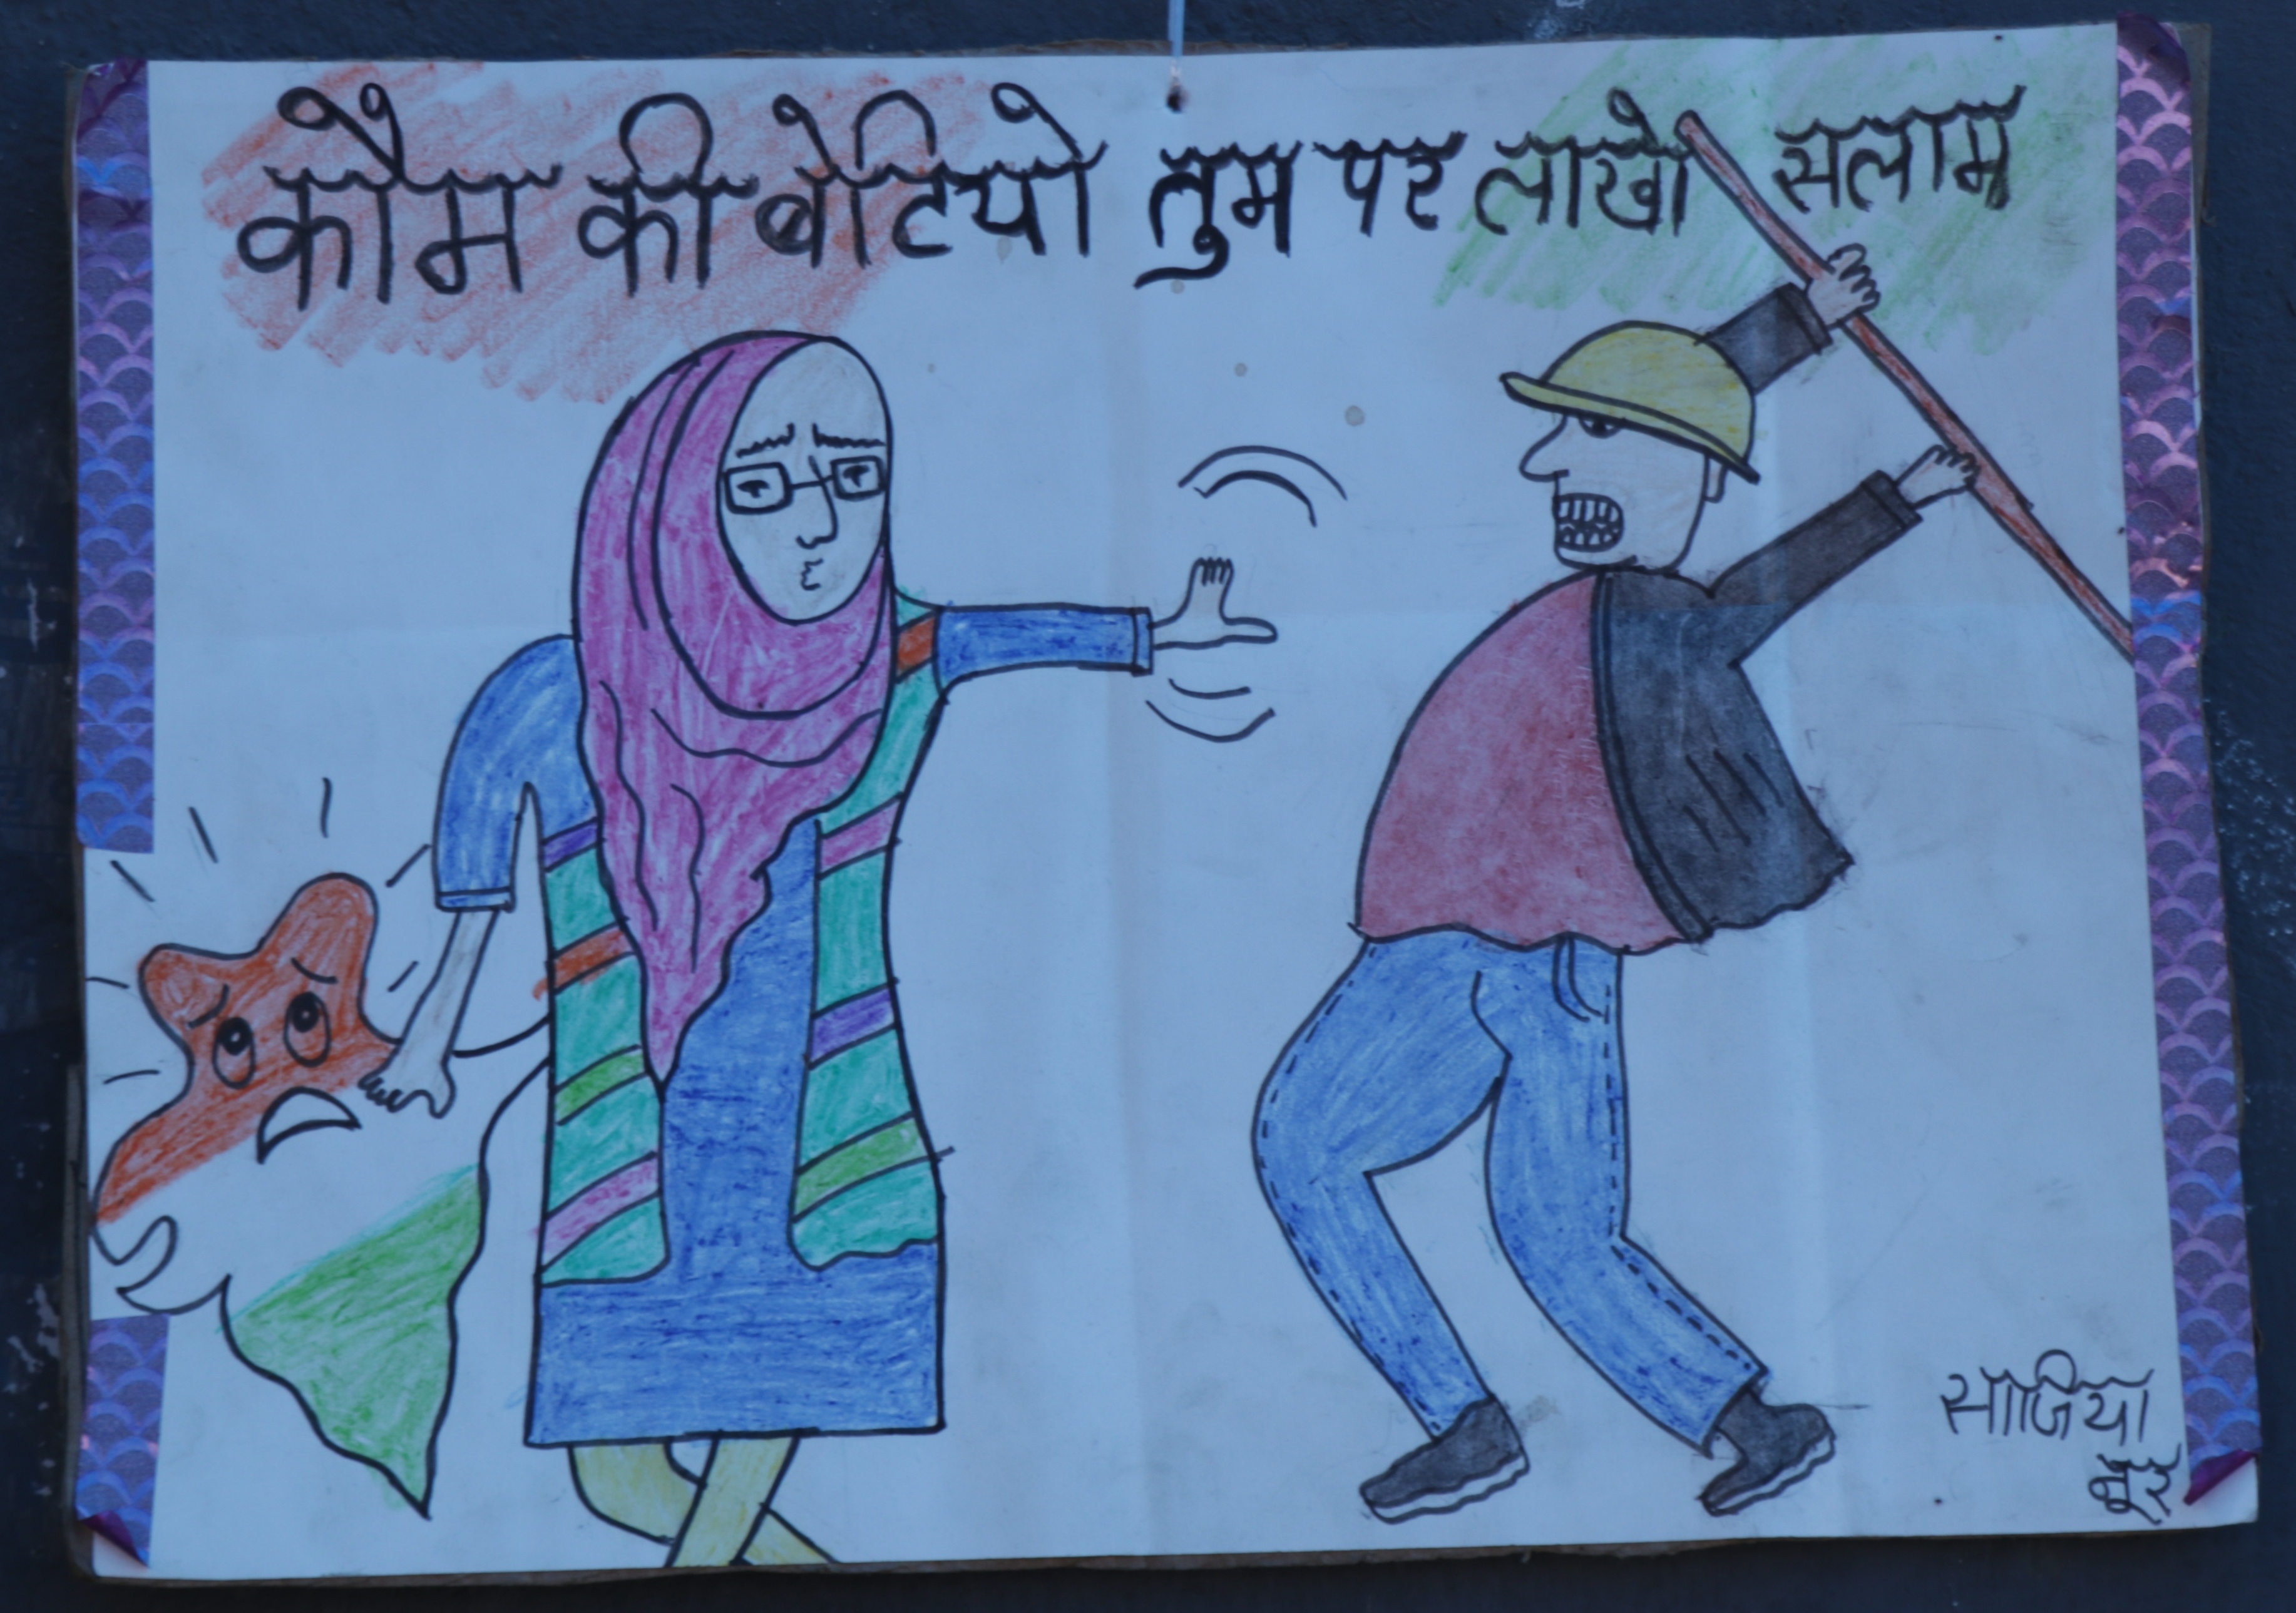 कौम की बेटियो तुम पर लाखो सलाम
साजिया